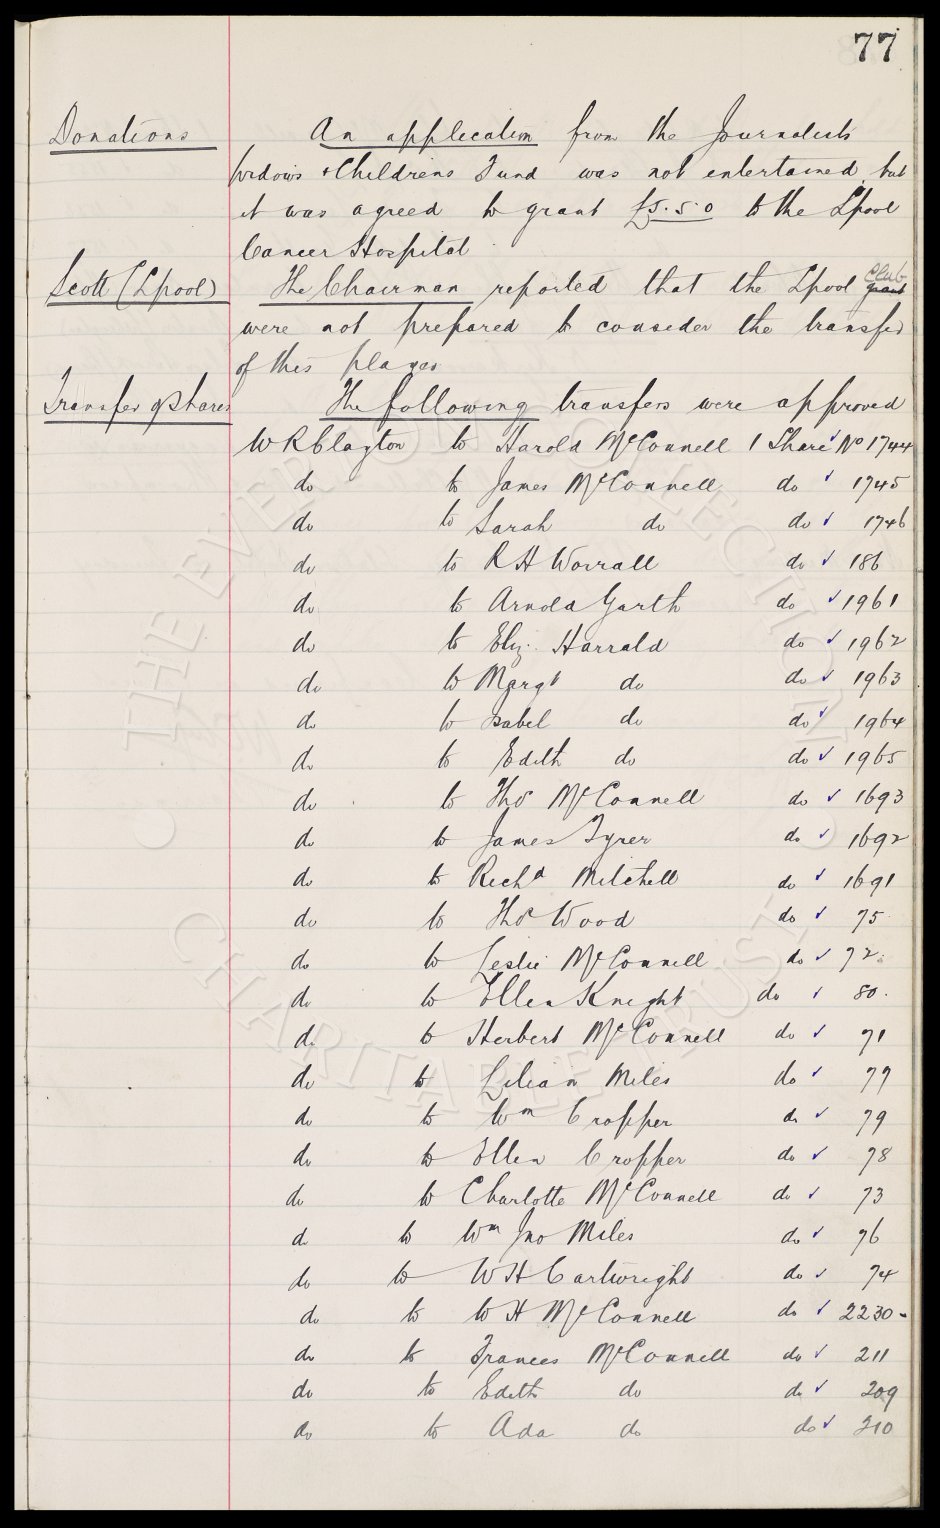 77
Donations
An application from the Journalists
Widows & Childrens Fund was not entertained, but
it was agreed to grant £5.5.0 to the Lpool
Cancer Hospital
Scott (Lpool)
The Chairman reported that the Lpool Club
were not prepared to consider the transfer
of this player
Transfer of Shares
The following transfers were approved
W R Clayton to Harold McConnell 1 Share ✓ No 1744
do to James McConnell do ✓ 1745
do to Sarah do do ✓ 1746
do to R H Worrall do ✓ 186
do to Arnold Garth do ✓ 1961
do to Eliz: Harrald do ✓ 1962
do to Margt do do ✓ 1963
do to Isabel do do ✓ 1964
do to Edith do do ✓ 1965
do to Thos McConnell do ✓ 1693
do to James Tyrer do ✓ 1692
do to Richd Mitchell do ✓ 1691
do to Thos Wood do ✓ 75
do to Leslie McConnell do ✓ 72
do to Ellen Knight do ✓ 80
do to Herbert McConnell do ✓ 71
do to Lilian Miles do ✓ 77
do to Wm Cropper do ✓ 79
do to Ellen Cropper do ✓ 78
do to Charlotte McConnell do ✓ 73
do to Wm Jno Miles do ✓ 76
do to W H Cartwright do ✓ 74
do to W H McConnell do ✓ 2230
do to Frances McConnell do ✓ 211
do to Edith do do ✓ 209
do to Ada do do ✓ 210
THE EVERTON COLLECTION
CHARITABLE TRUST